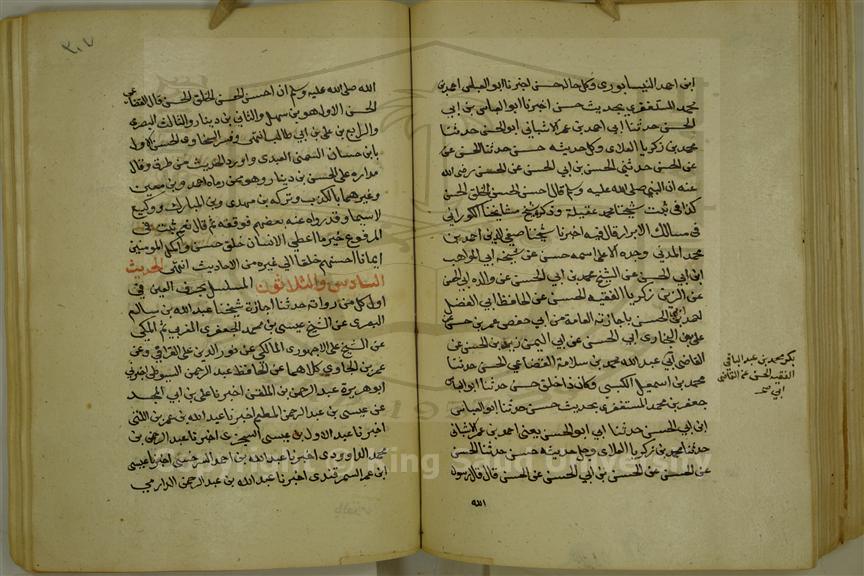 ابن احمد النيسابوري وكل حاله حسن اخبرنا ابوالعباس احمد بن
محمد المستغفري بحديث حسن اخبرنا ابوالعباس بن ابي
الحسن حدثنا ابي احمد بن عمر الاشناني ابوالحسن حدثنا
محمد بن زكريا الغلابي وكل حديثه حسن حدثنا الحسن عن
الحسن حدثني الحسن بن ابي الحسن عن الحسن رضى الله
عنه ان النبي صلى الله عليه وسلم قال احسن الحسن الخلق الحسن
كذا في ثبت شيخنا محمد عقيلة وذكره شيخ مشايخنا الكوراني
في مسالك الابرار قال فيه اخبرنا شيخنا صفي الدين احمد بن
محمد المدني وجده الاعلى اسمه حسن عن شيخه ابي المواهب
ابن ابي الحسن عن الشيخ محمد بن ابي الحسن عن والده ابي الحسن
عن الزين زكريا الفقيه الحسن عن الحافظ ابي الفضل
احمد بن ابي الحسن باجازته العامة من ابي حفص عمر بن حسن
علي بن البخاري ابي الحسن عن ابي اليمن زيد بن الحسن عن
القاضي ابي عبد الله محمد بن سلامة القضاعي الحسن حدثنا
محمد بن اسمعيل الكسي وكان ذا خلق حسن حدثنا ابوالعباس
جعفر بن محمد المستغفري بحديث حسن حدثنا ابوالعباس
ابن ابي الحسن حدثنا ابي ابوالحسن يعني احمد بن عمر الاشناني
حدثنا محمد بن زكريا الغلابي وجل حديثه حسن حدثنا الحسن
عن الحسن عن الحسن بن ابي الحسن عن الحسن قال قال رسول
الله
بكر محمد بن عبد الباقي
الفقيه الحسن عن القاضي
ابي محمد
٣٠٧
الله صلى الله عليه وسلم ان احسن الحسن الخلق الحسن قال القضاعي
الحسن الاول هو بن سهل والثاني بن دينار والثالث البصري
والرابع بن علي بن ابي طالب انتهى وفسر السخاوي الحسن الاول
بابن حسان السمتي العبدي واورد الحديث من طرق وقال
مداره على الحسن بن دينار وهو ممن رماه احمد وبن معين
وغيرهما بالكذب وتركه بن مهدي وبن المبارك ووكيع
لاسيما وقد رواه عنه بعضهم فوقفه ثم قال نعم ثبت في
المرفوع خير ما اعطي الانسان خلق حسن واكمل المومنين
ايمانا احسنهم خلقا الى غيره من الاحاديث انتهى الحديث
السادس والثلاثون المسلسل بحرف العين في
اول كل من رواته حدثنا اجازة شيخنا عبد الله بن سالم
البصري عن الشيخ عيسى بن محمد الجعفري المغربي ثم المكي
عن الشيخ علي الاجهوري المالكي عن نور الدين علي القرافي وعن
عمر بن الجاوي كلاهما عن الحافظ عبد الرحمن السيوطي اخبرني
ابو هريرة عبد الرحمن بن الملقن اخبرنا علي بن ابي المجد
عن عيسى بن عبد الرحمن المطعم اخبرنا عبد الله بن عمر بن اللتي
اخبرنا عبد الاول بن عيسى السجزي اخبرنا عبد الرحمن بن
محمد الداوودي اخبرنا عبد الله بن احمد السرخسي اخبرنا عيسى
ابن عمر السمرقندي اخبرنا عبد الله بن عبد الرحمن الدارمي